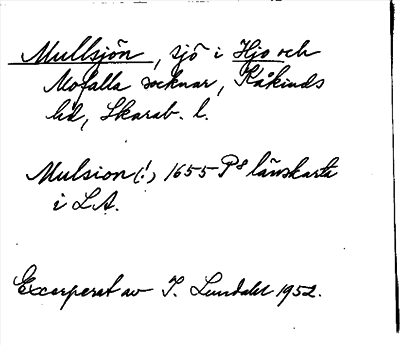 Mullsjön, sjö i Hjo och
Mofalla socknar, Kåkinds
hd, Skarab. l.
Mulsion (!) 1655 P8 länskarta
i LA.
Excerperat av I. Lundahl 1952.